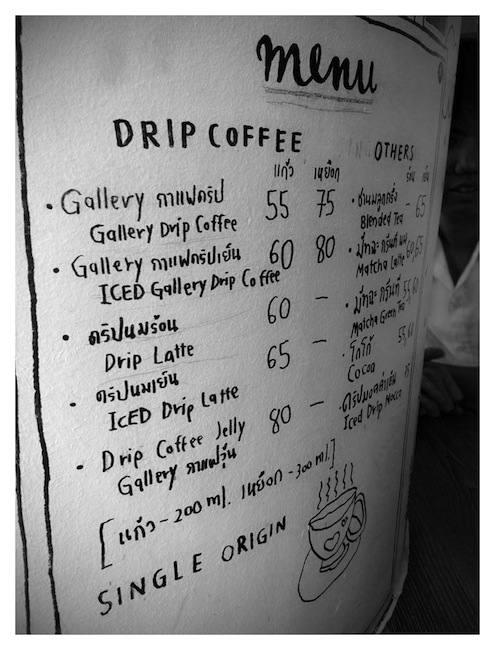 menu
DRIP COFFEE
แก้ว เหยือก
• Gallery กาแฟดริป 55 75
Gallery Drip Coffee
• Gallery กาแฟดริปเย็น 60 80
ICED Gallery Drip Coffee
• ดริปนมร้อน 60 –
Drip Latte
• ดริปนมเย็น 65 –
ICED Drip Latte
• Drip Coffee Jelly 80 –
Gallery กาแฟวุ้น
[แก้ว - 200 ml. เหยือก - 300 ml.]
SINGLE ORIGIN
OTHERS
ร้อน เย็น
• ชานมลูกครึ่ง – 65
Blended Tea
• มัทฉะ กรีนที นม 60 65
Matcha Latte
• มัทฉะ กรีนที 55,60
Matcha Green Tea
• โกโก้ 55,60
Cocoa
Iced Drip Mocca